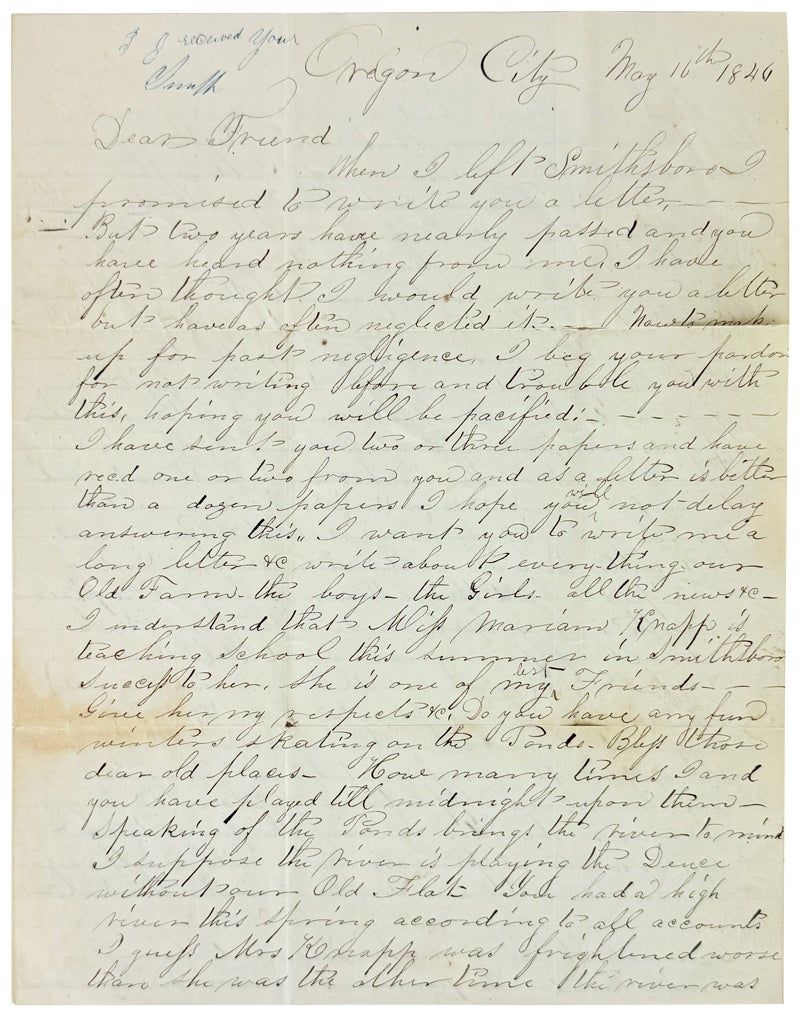 I received Your
Smith
Oregon City May 16th 1846
Dear Friend
When I left Smithsboro I
promised to write you a letter, — — —
But two years have nearly passed and you
have heard nothing from me, I have
often thought I would write you a letter
but have as often neglected it. — Now to make
up for past negligence, I beg your pardon
for not writing before and trouble you with
this, hoping you will be pacified:- — — — — —
I have sent you two or three papers and have
recd one or two from you and as a letter is better
than a dozen papers I hope you will not delay
answering this,, I want you to write me a
long letter &c write about every-thing- our
Old Farm- the boys- the Girls- all the news &c-
I understand that Miss Mariam Knapp is
teaching school this summer in Smithsboro
success to her. she is one of my best Friends- — —
Give her my respects &c. Do you have any fun
winters skating on the Ponds- Bless those
dear old places- How many times I and
you have played till midnight upon them-
Speaking of the Ponds brings the river to mind
I suppose the river is playing the Deuce
without our Old Flat You had a high
river this spring according to all accounts
I guess Mrs Knapp was frightened worse
than she was the other time the river was